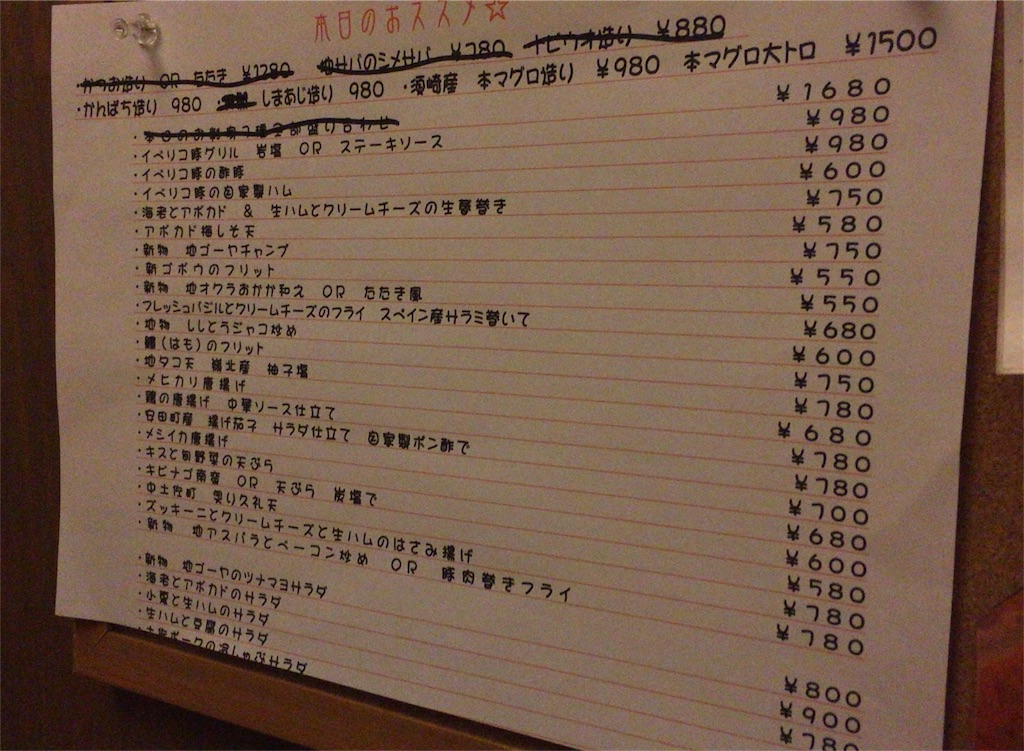 本日のおススメ☆
かつお造り OR たたき ¥1280 ゆサバのシメサバ ¥780 トビウオ造り ¥880
・かんぱち造り 980 ・しまあじ造り 980 ・須崎産 本マグロ造り ¥980 本マグロ大トロ ¥1500
・本日のお刺身 ¥1680
・イベリコ豚グリル 岩塩 OR ステーキソース ¥980
・イベリコ豚の酢豚 ¥980
・イベリコ豚の自家製ハム ¥600
・海老とアボカド & 生ハムとクリームチーズの生春巻き ¥750
・アボカド梅しそ天 ¥580
・新物 地ゴーヤチャンプ ¥750
・新ゴボウのフリット ¥550
・新物 地オクラおかか和え OR たたき風 ¥550
・フレッシュバジルとクリームチーズのフライ スペイン産サラミ巻いて ¥680
・地物 ししとうジャコ炒め ¥600
・鱧(はも)のフリット ¥750
・地タコ天 嶺北産 柚子塩 ¥780
・メヒカリ唐揚げ ¥680
・鶏の唐揚げ 中華ソース仕立て ¥780
・安田町産 揚げ茄子 サラダ仕立て 自家製ポン酢で ¥780
・メシイカ唐揚げ ¥700
・キスと旬野菜の天ぷら ¥680
・キビナゴ南蛮 OR 天ぷら 炭塩で ¥600
・中土佐町 久礼天 ¥580
・ズッキーニとクリームチーズと生ハムのはさみ揚げ ¥780
・新物 地アスパラとベーコン炒め OR 豚肉巻きフライ ¥780
・新物 地ゴーヤのツナマヨサラダ ¥800
・海老とアボカドのサラダ ¥900
・小東と生ハムのサラダ ¥780
・生ハムと豆腐のサラダ
・土佐ポークの冷しゃぶサラダ